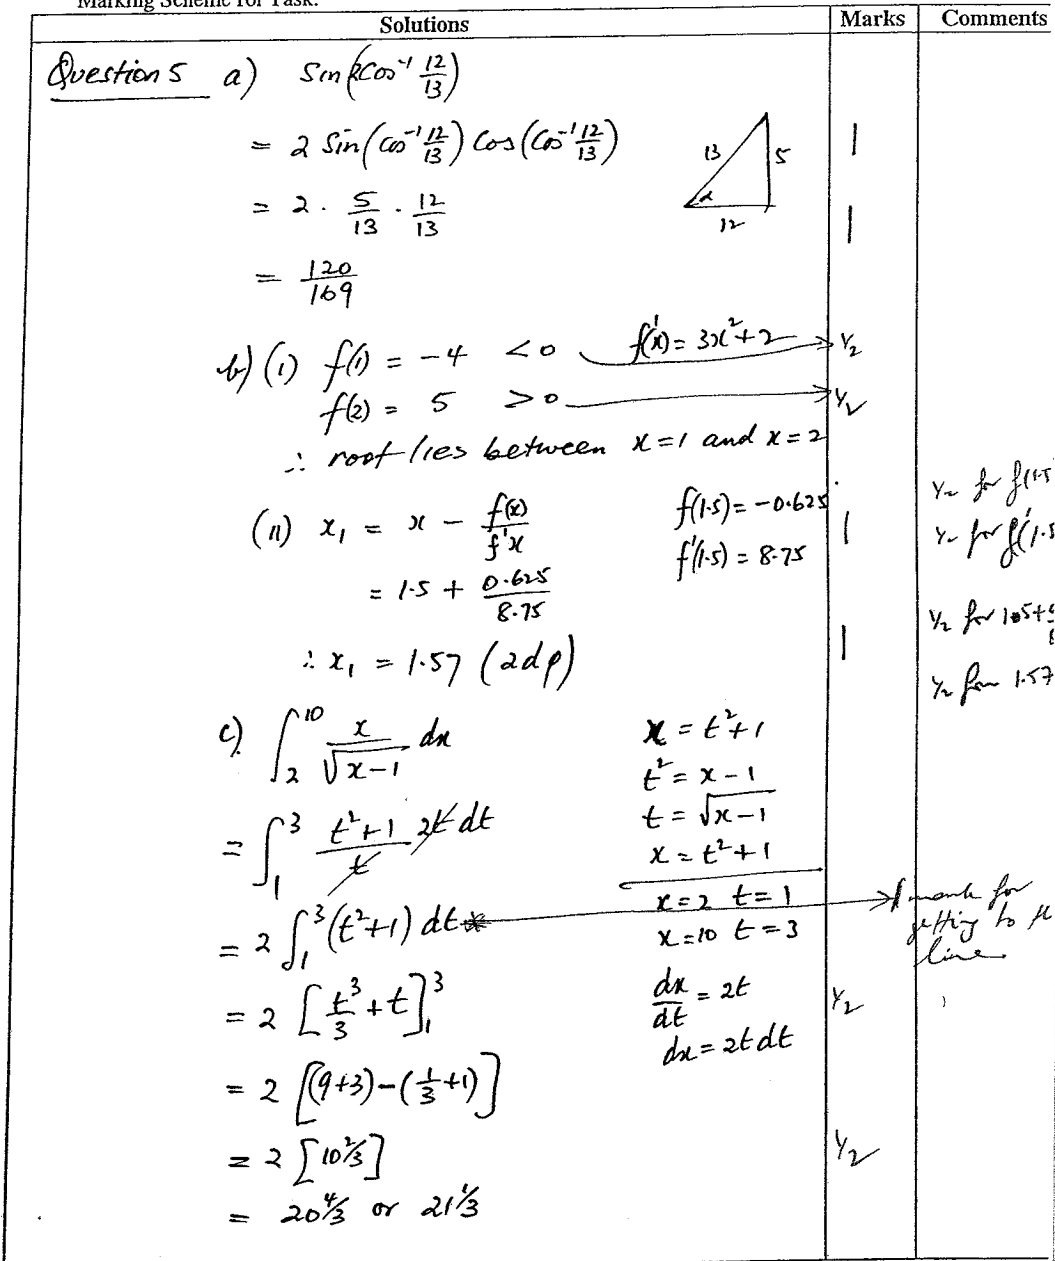 Marking Scheme for Task:
Solutions Marks Comments
Question 5 a) Sin(2Cos⁻¹ 12/13)
= 2 Sin(cos⁻¹ 12/13) Cos(Cos⁻¹ 12/13) 1
13 5
α
12
= 2 . 5/13 . 12/13 1
= 120/169
b) (i) f(1) = -4 < 0 f'(x) = 3x² + 2 ½
f(2) = 5 > 0 ½
∴ root lies between x=1 and x=2
(ii) x₁ = x - f(x)/f'x f(1.5) = -0.625 1 ½ for f(1.5
f'(1.5) = 8.75 ½ for f'(1.5
= 1.5 + 0.625/8.75 ½ for 1.5+
∴ x₁ = 1.57 (2dp) 1 ½ for 1.57
c) ∫₂¹⁰ x/√(x-1) dx x = t²+1
t² = x - 1
t = √(x-1)
= ∫₁³ (t²+1)/t 2t dt x = t²+1
x=2 t=1
= 2 ∫₁³ (t²+1) dt * 1 mark for getting to line
x=10 t=3
= 2 [t³/3 + t]₁³ dx/dt = 2t ½
dx = 2t dt
= 2 [(9+3) - (1/3+1)]
= 2 [10⅔] ½
= 20 4/3 or 21⅓